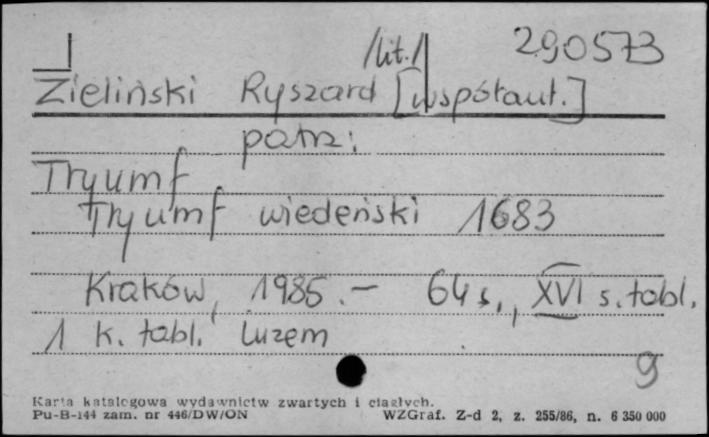 /lit./ 290573
Zieliński Ryszard [współaut.]
patrz:
Tryumf
Tryumf wiedeński 1683
Kraków, 1985. – 64 s., XVI s. tabl.,
1 k. tabl. luzem
9
Karta katalogowa wydawnictw zwartych i ciągłych.
Pu-B-144 zam. nr 446/DW/ON WZGraf. Z-d 2, z. 255/86, n. 6 350 000